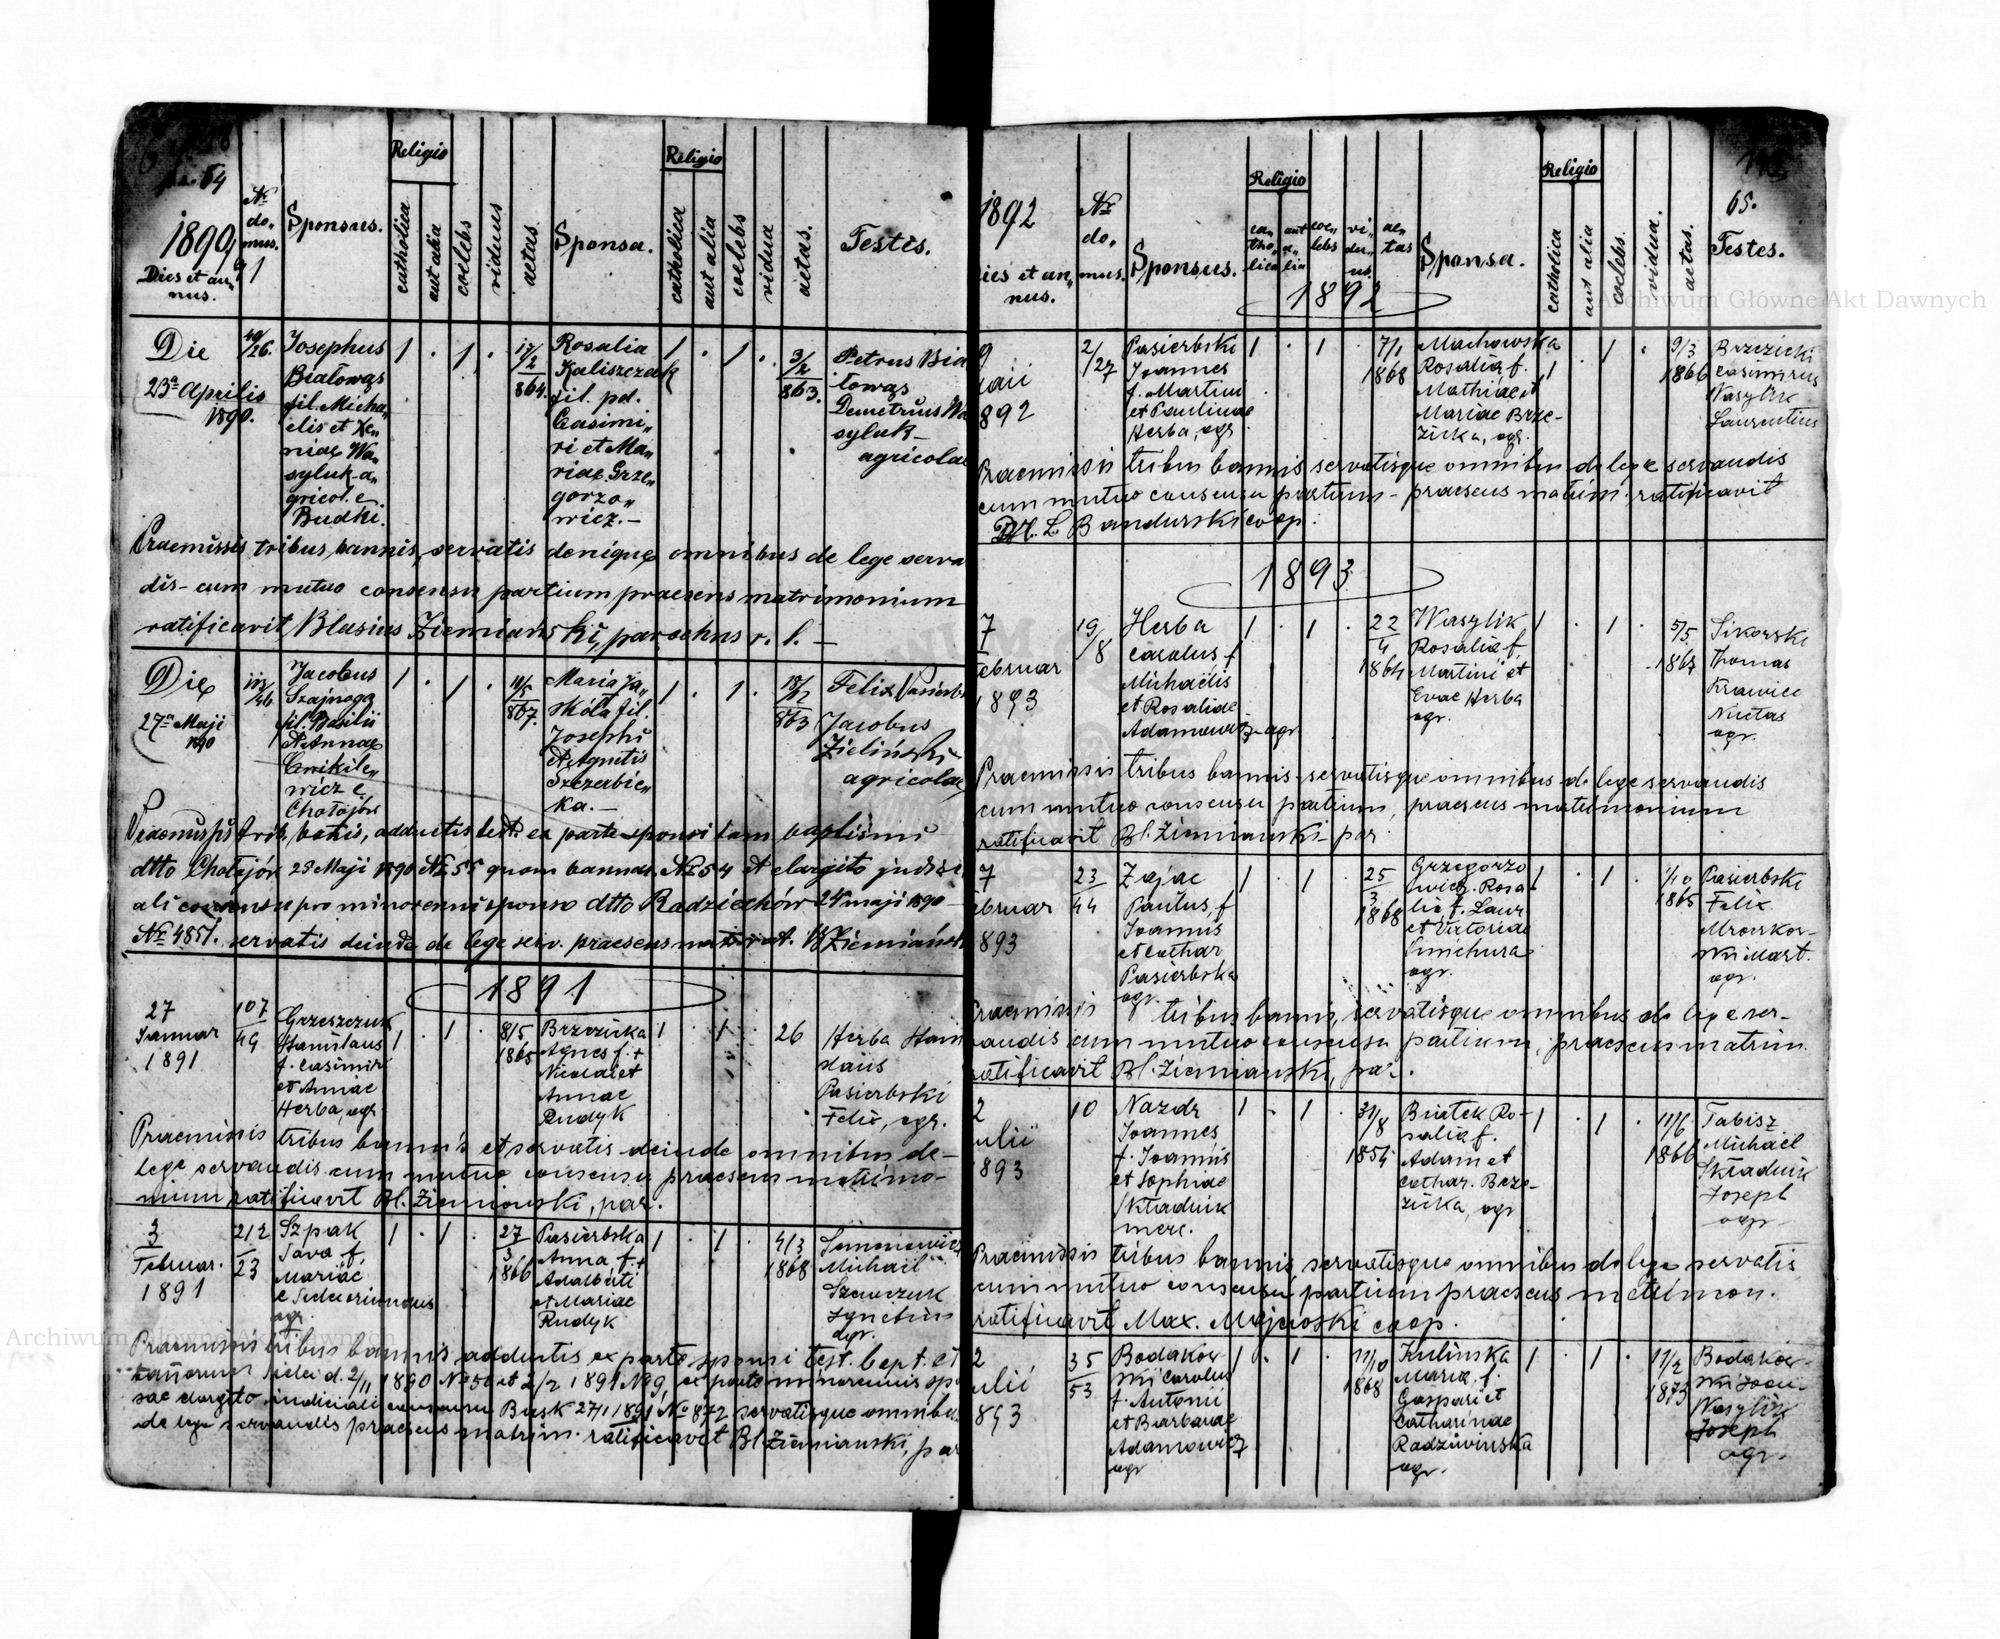 64
1890/91
Dies et an„
nus.
Nr.
do„
mus.
Sponsus.
Religio
catholica
aut alia
coelebs
viduus
aetas.
Sponsa.
Religio
catholica
aut alia
coelebs
vidua
aetas.
Testes.
Die
23ª Aprilis
1890.
40/26.
Josephus
Białowąs
fil. Micha„
elis et Xe„
niae Wa„
syluk a„
gricol. e
Budki.
1 . 1 .
17/2
864.
Rosalia
Kaliszczak
fil. pd.
Casimi„
ri et Ma„
riae Grze„
gorzo„
wicz.—
1 . 1 .
3/2
863.
Petrus Bia
łowąs
Demetrius Wa
syluk—
agricolae
Praemissis tribus bannis, servatis denique omnibus de lege serva
dis- cum mutuo consensu partium praesens matrimonium
ratificavit Blasius Ziemiański, parochus r. l. —
Die
27ª Maji
1890
Jacobus
Szajnoga
fil. Basilii
et Annae
wicz e
Chołojów
1 . 1 .
11/5
867.
Maria Ja„
skóła fil.
Josephi
et Agnetis
Szczerbic„
ka.—
1 . 1 .
863
Felix Pasierb
Jacobus
Zieliński
agricolae
Praemissis trib. banis, adductis test. ex parte sponsi tam baptismi
dtto Chołojów 25 Maji 1890 Nr 55 quam bannor. Nr 54 et elargito judici
ali consensu pro minorenni sponso dtto Radziechów 24 maji 1890
Nr 4851. servatis deinde de lege serv. praesens matr. rat. Bl Ziemiański
1891
27
Januar
1891
107
49
Grzeszczuk
Stanilaus
f. Casimiri
et Annae
Herba, agr.
1 . 1 .
8/5
1865
Brzezicka
Agnes f. +
Nicolai et
Annae
Rudyk
1 . 1 .
26
Herba Stani
slaus
Pasierbski
Felix, agr.
Praemissis tribus bannis et servatis deinde omnibus de-
lege servandis cum mutuo consensu praesens matrimo-
nium ratificavit Bl. Ziemianski, par.
3
Februar.
1891
212
23
Szpak
Sava f.
Mariae
agr.
1 . 1 .
27
3
1866
Pasierbska
Anna f. +
Adalberti
et Mariae
Rudyk
1 . 1 .
4/3
1868
Semenowicz
Michael
Szewczuk
Ignatius
agr.
Praemissis tribus bannis adductis ex parte sponsi test. bapt. et
bannorum Sielec d. 2/11 1890 No 50 et 2/2 1891 No 9, ex parte minorennis sp
sae elargito judiciali consensu Busk 27/1 1891 No 872 servatisque omnibus
de lege servandis praesens matrim. ratificavit Bl. Ziemianski, par
65.
1892
ies et an„
nus.
Nr
do„
mus.
Sponsus.
Religio
ca„
tho„
lica
aut
a„
lia
coe„
lebs
vi„
du„
us.
ae„
tas
Sponsa.
Religio
catholica
aut alia
coelebs.
vidua.
aetas.
Testes.
1892
9
aii
892
2/
127
Pasierbski
Joannes
f. Martini
et Paulinae
Herba, agr
1 . 1 .
7/1
1868
Machowska
Rosalia f.
Mathiae et
Mariae Brze-
zicka, agr.
1 . 1 .
9/3
1866
Brzezicki
Casimirus
Wasylik
Laurentius
Praemissis tribus bannis servatisque omnibus de lege servandis
cum mutuo consensu partium - praesens matrim. ratificavit
L. Bandurski coop.
1893
7
ebruar
1893
19/
8
Herba
Carolus f.
Michaëlis
et Rosaliae
Adamowicz agr
1 . 1 .
22
4
1864
Wasylik
Rosalia f.
Martini et
Evae Herba
agr.
1 . 1 .
5/5
Sikorski
Thomas
Krawiec
Nicetas
agr.
Praemissis tribus bannis servatisque omnibus de lege servandis
cum mutuo consensu partium, praesens matrimonium
ratificavit Bl. Ziemianski par.
7
ebruar
893
23
44
Zając
Paulus, f
Joannis
et Cathar
Pasierbska
agr.
1 . 1 .
25
3
1868
Grzegorzo
wicz Rosa-
lia f. Laur
et Victoriae
Smichura
agr.
1 . 1 .
1/10
1865
Pasierbski
Felix
Mroszkow-
ski Mart.
agr.
Praemissis tribus bannis, servatisque omnibus de lege ser-
vandis cum mutuo consensu partium, praesens matrim.
ratificavit Bl. Ziemianski, par.
2
ulii
893
10
Nazdr
Joannes
f. Joannis
et Sophiae
Składnik
merc.
1 . 1 .
31/8
1854
Białek Ro-
salia f.
Adam et
Cathar. Brze-
zicka, agr
1 . 1 .
11/6
1866
Tabisz
Michaël
Składnik
Joseph
agr
Praemissis tribus bannis, servatisque omnibus de lege servatis
cum mutuo consensu partium praesens matrimon.
ratificavit Max. Majewski coop.
2
ulii
893
35
53
Bodakow-
ski Carolus
f. Antonii
et Barbarae
Adamowicz
agr
1 . 1 .
11/10
1868
Kulinska
Maria, f.
Gaspari et
Catharinae
Radziwinska
agr.
1 . 1 .
11/2
1873
Bodakow-
ski Joan-
Wasylik
Joseph
agr.
Archiwum Główne Akt Dawnych
Archiwum Główne Akt Dawnych